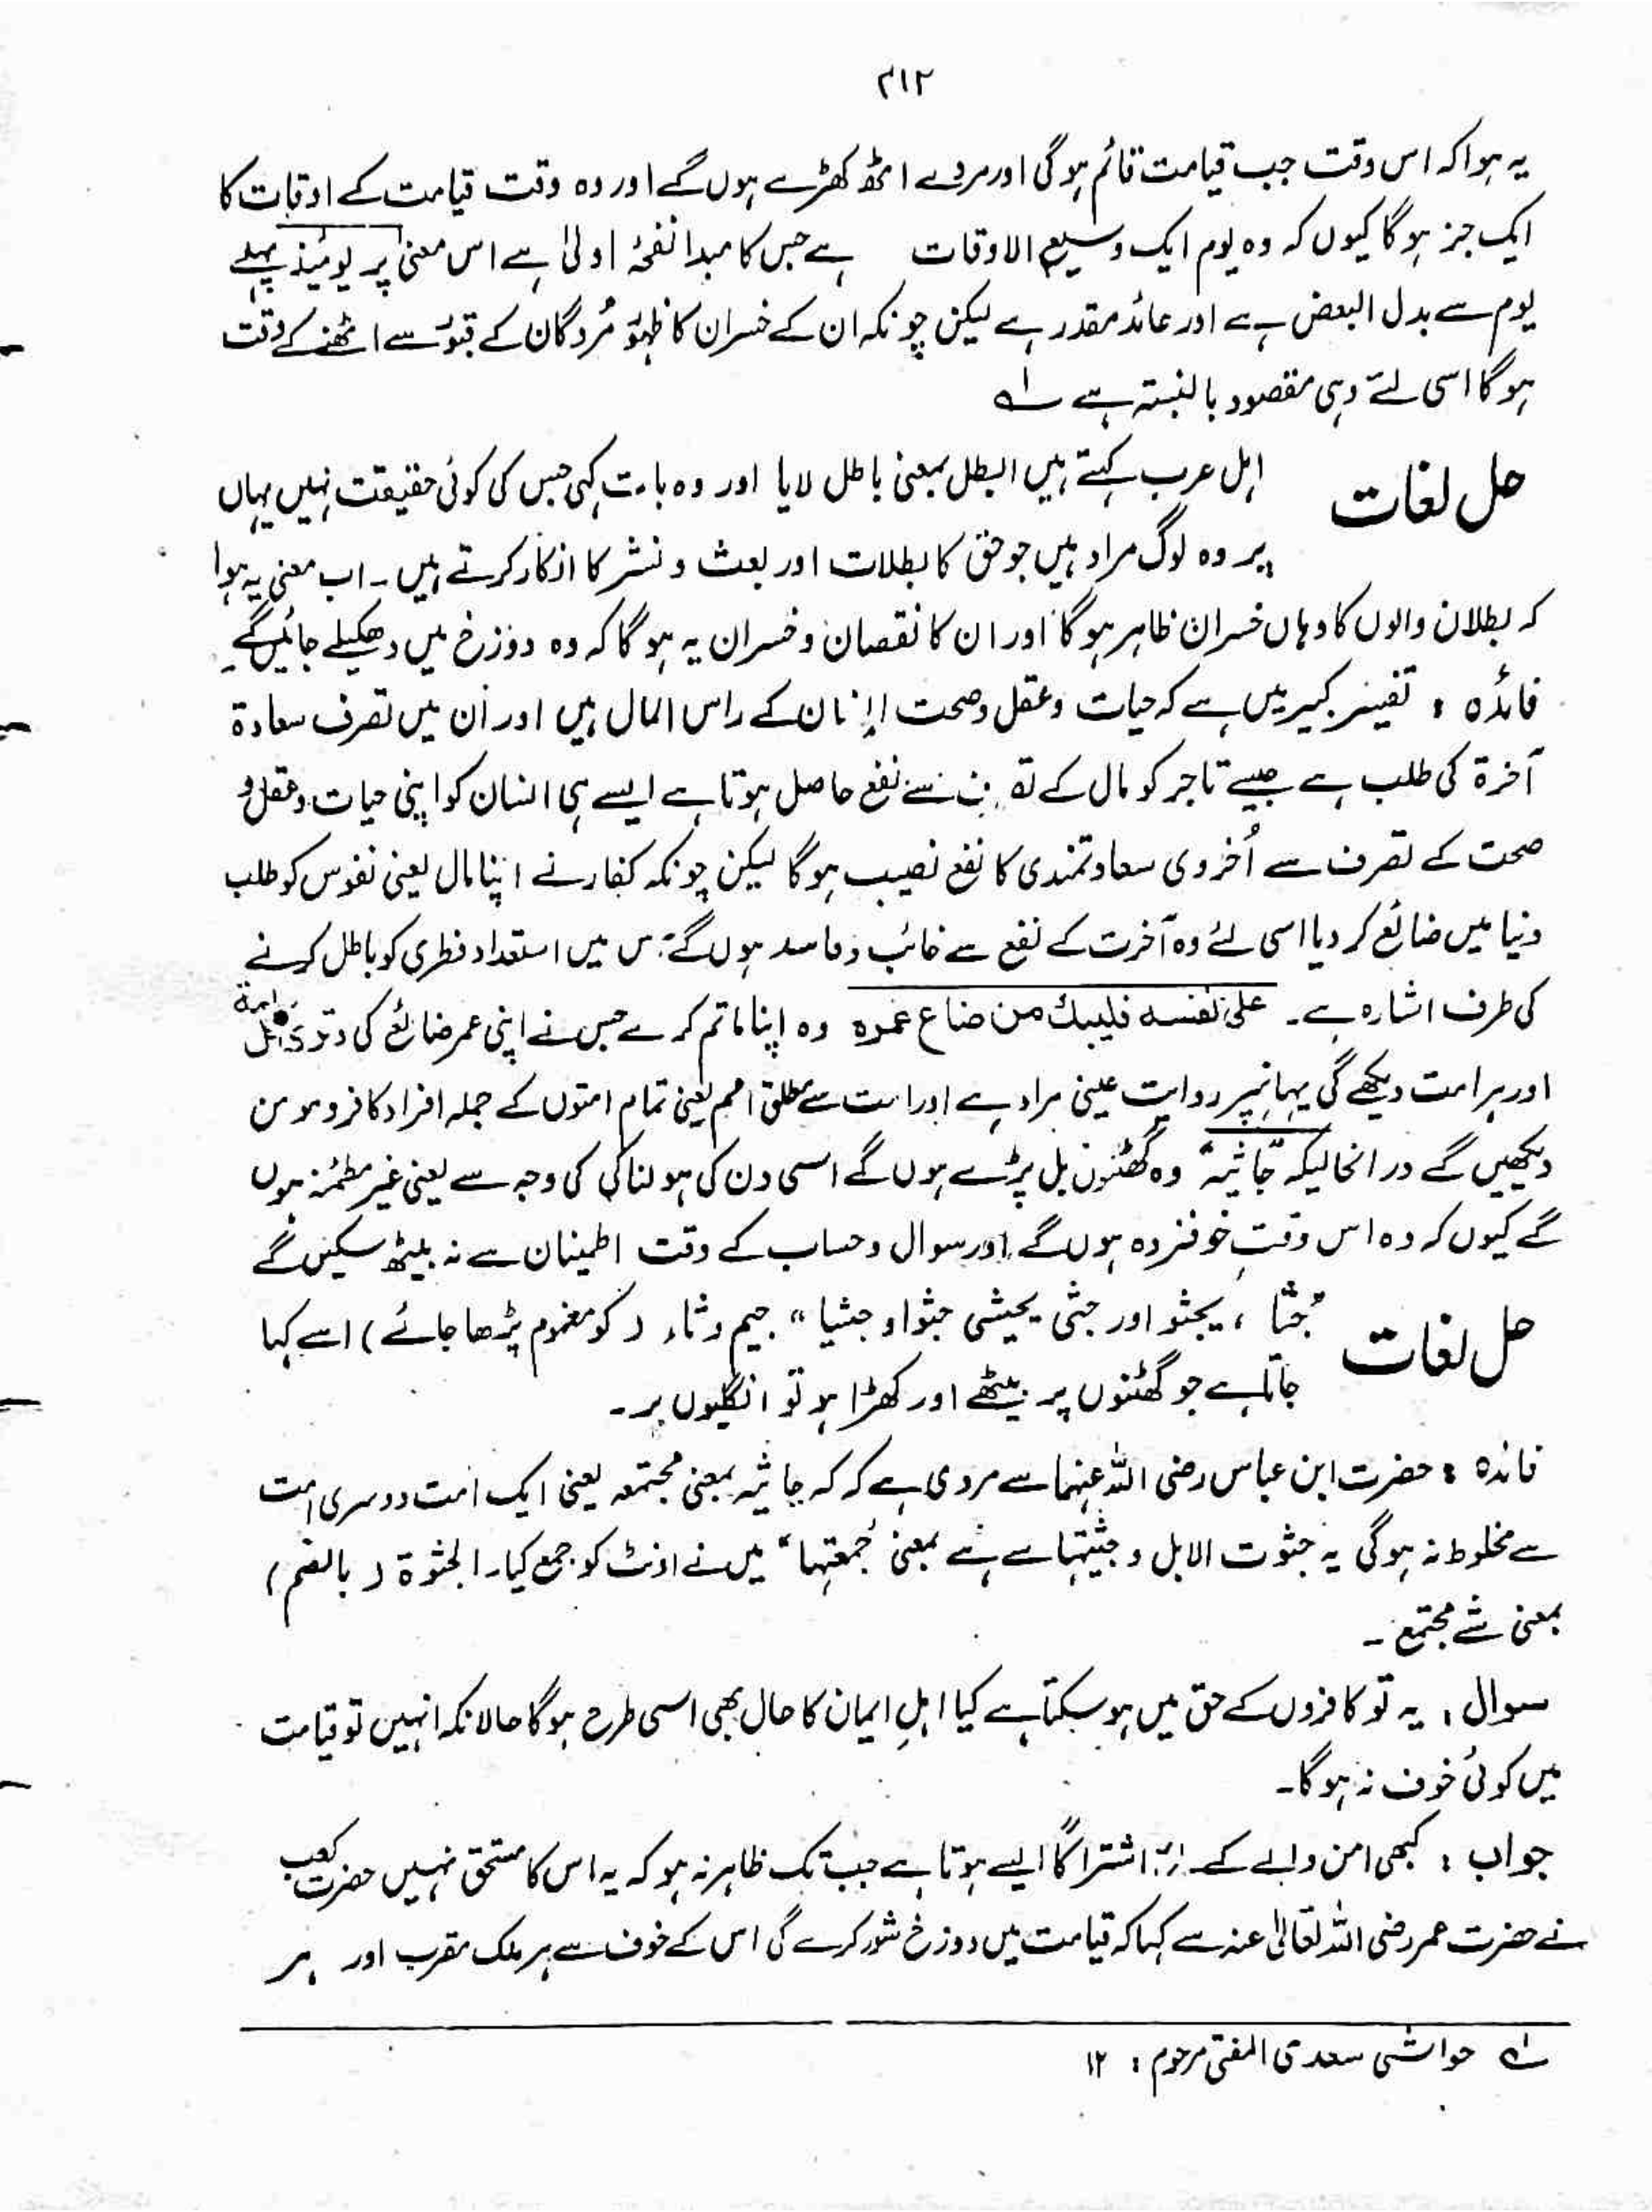 ۲۱۲
یہ ہوا کہ اس وقت جب قیامت قائم ہو گی اور مردے اٹھ کھڑے ہوں گے اور وہ وقت قیامت کے اوقات کا
ایک جز ہو گا کیوں کہ وہ یوم ایک وسیع الاوقات ہے جس کا مبدا نفخۂ اولیٰ ہے اس معنیٰ پر یومئذ پہلے
یوم سے بدل البعض ہے اور عائد مقدر ہے لیکن چونکہ ان کے خسران کا ظہور مُردگان کے قبور سے اٹھنے کے وقت
ہو گا اسی لئے وہی مقصود بالنسبتہ ہے ؎۱
حل لغات
اہل عرب کہتے ہیں البطل بمعنیٰ باطل لایا اور وہ بات کہی جس کی کوئی حقیقت نہیں یہاں
پر وہ لوگ مراد ہیں جو حق کا بطلات اور بعث و نشر کا انکار کرتے ہیں ۔ اب معنی یہ ہوا
کہ بطلان والوں کا وہاں خسران ظاہر ہو گا اور ان کا نقصان و خسران یہ ہو گا کہ وہ دوزخ میں دھکیلے جائیں گے ۔
فائدہ : تفسیر کبیر میں ہے کہ حیات و عقل و صحت انسان کے راس المال ہیں اور اُن میں تصرف سعادۃ
آخرۃ کی طلب ہے جیسے تاجر کو مال کے سے نفع حاصل ہوتا ہے ایسے ہی انسان کو اپنی حیات و عقل و
صحت کے تصرف سے اُخروی سعادتمندی کا نفع نصیب ہو گا لیکن چونکہ کفار نے اپنا مال یعنی نفوس کو طلب
دنیا میں ضائع کر دیا اسی لئے وہ آخرت کے نفع سے خائب و خاسر ہوں گے اس میں استعداد فطری کو باطل کرنے
کی طرف اشارہ ہے ۔ علیٰ نفسہ فلیبك من ضاع عمرہ وہ اپنا ماتم کرے جس نے اپنی عمر ضائع کی وتریٰ کل امة
اور ہر امت دیکھے گی یہاں پر روایت عینی مراد ہے اور امت سے مطلق امم یعنی تمام امتوں کے جملہ افراد کافر و مومن
دیکھیں گے درانحالیکہ جاثیہ" وہ گھٹنوں بل پڑے ہوں گے اسی دن کی ہولناکی کی وجہ سے یعنی غیر مطمئنہ ہوں
گے کیوں کہ وہ اس وقت خوفزدہ ہوں گے اور سوال و حساب کے وقت اطمینان سے نہ بیٹھ سکیں گے
حل لغات
"جثا ، یجثو اور جثی یجیثی جثوا و جثیا" جیم و ثاء ( کو مضموم پڑھا جائے ) اسے کہا
جاتا ہے جو گھٹنوں پر بیٹھے اور کھڑا ہو تو انگلیوں پر ۔
فائدہ : حضرت ابن عباس رضی اللہ عنہما سے مروی ہے کہ کہ جاثیہ بمعنیٰ مجتمعہ یعنی ایک امت دوسری امت
سے مخلوط نہ ہو گی یہ جثوت الابل و جثیتہا سے ہے بمعنی جمعتہا" میں نے اونٹ کو جمع کیا۔ الجثوۃ ( بالضم )
بمعنی شے مجتمع ۔
سوال : یہ تو کافروں کے حق میں ہو سکتا ہے کیا اہلِ ایمان کا حال بھی اسی طرح ہو گا حالانکہ انہیں تو قیامت
میں کوئی خوف نہ ہو گا۔
جواب : کبھی امن والے کے اشتراکاً ایسے ہوتا ہے جب تک ظاہر نہ ہو کہ یہ اس کا مستحق نہیں حضرت کعب
نے حضرت عمر رضی اللہ تعالیٰ عنہ سے کہا کہ قیامت میں دوزخ شور کرے گی اس کے خوف سے ہر ملک مقرب اور ہر
؎۱ حواشی سعدی المفتی مرحوم : ۱۲